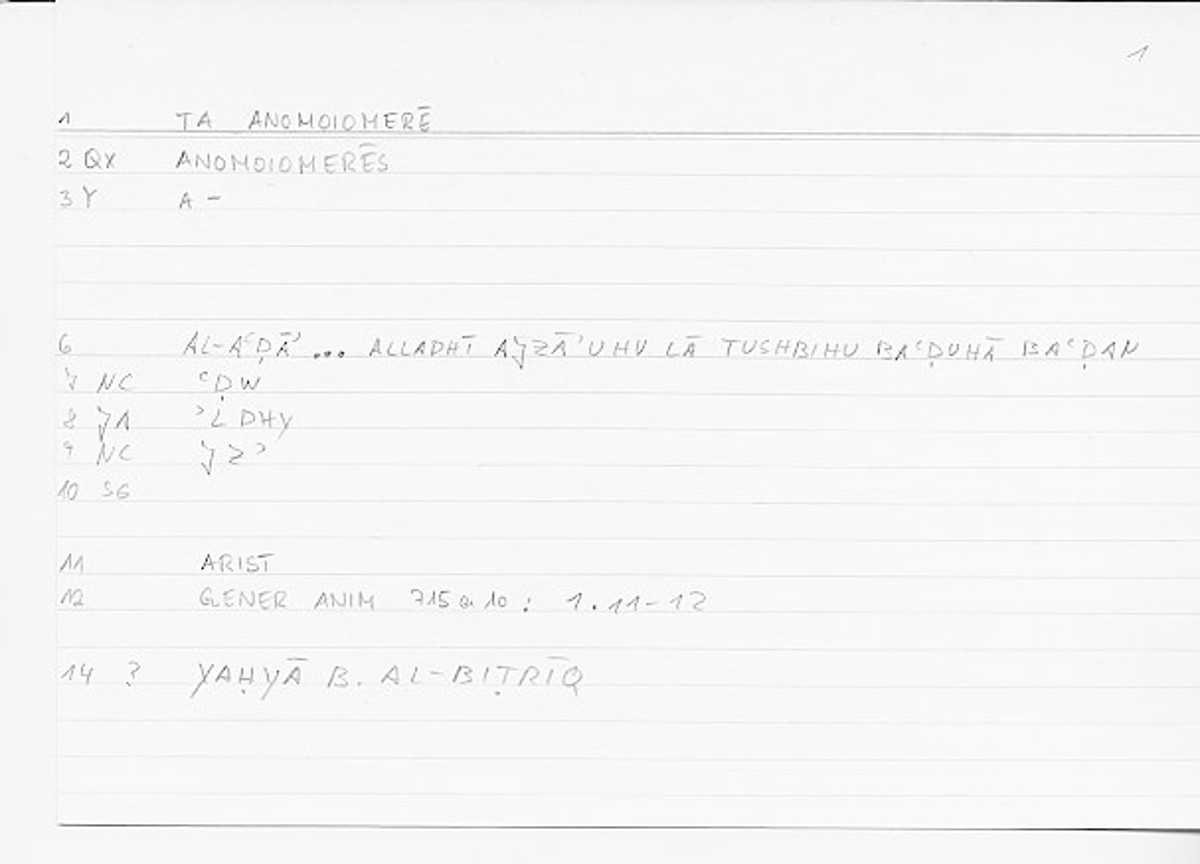 1
1 TA ANOMOIOMERĒ
2 QX ANOMOIOMERĒS
3 Y A -
6 AL-AʿḌĀʾ ... ALLADHĪ AJZĀʾUHU LĀ TUSHBIHU BAʿḌUHĀ BAʿḌAN
7 NC ʿḌW
8 J1 ʾLDHY
9 NC JZʾ
10 SG
11 ARIST
12 GENER ANIM 715a10; 1.11-12
14 ? YAḤYĀ B. AL-BIṬRĪQ